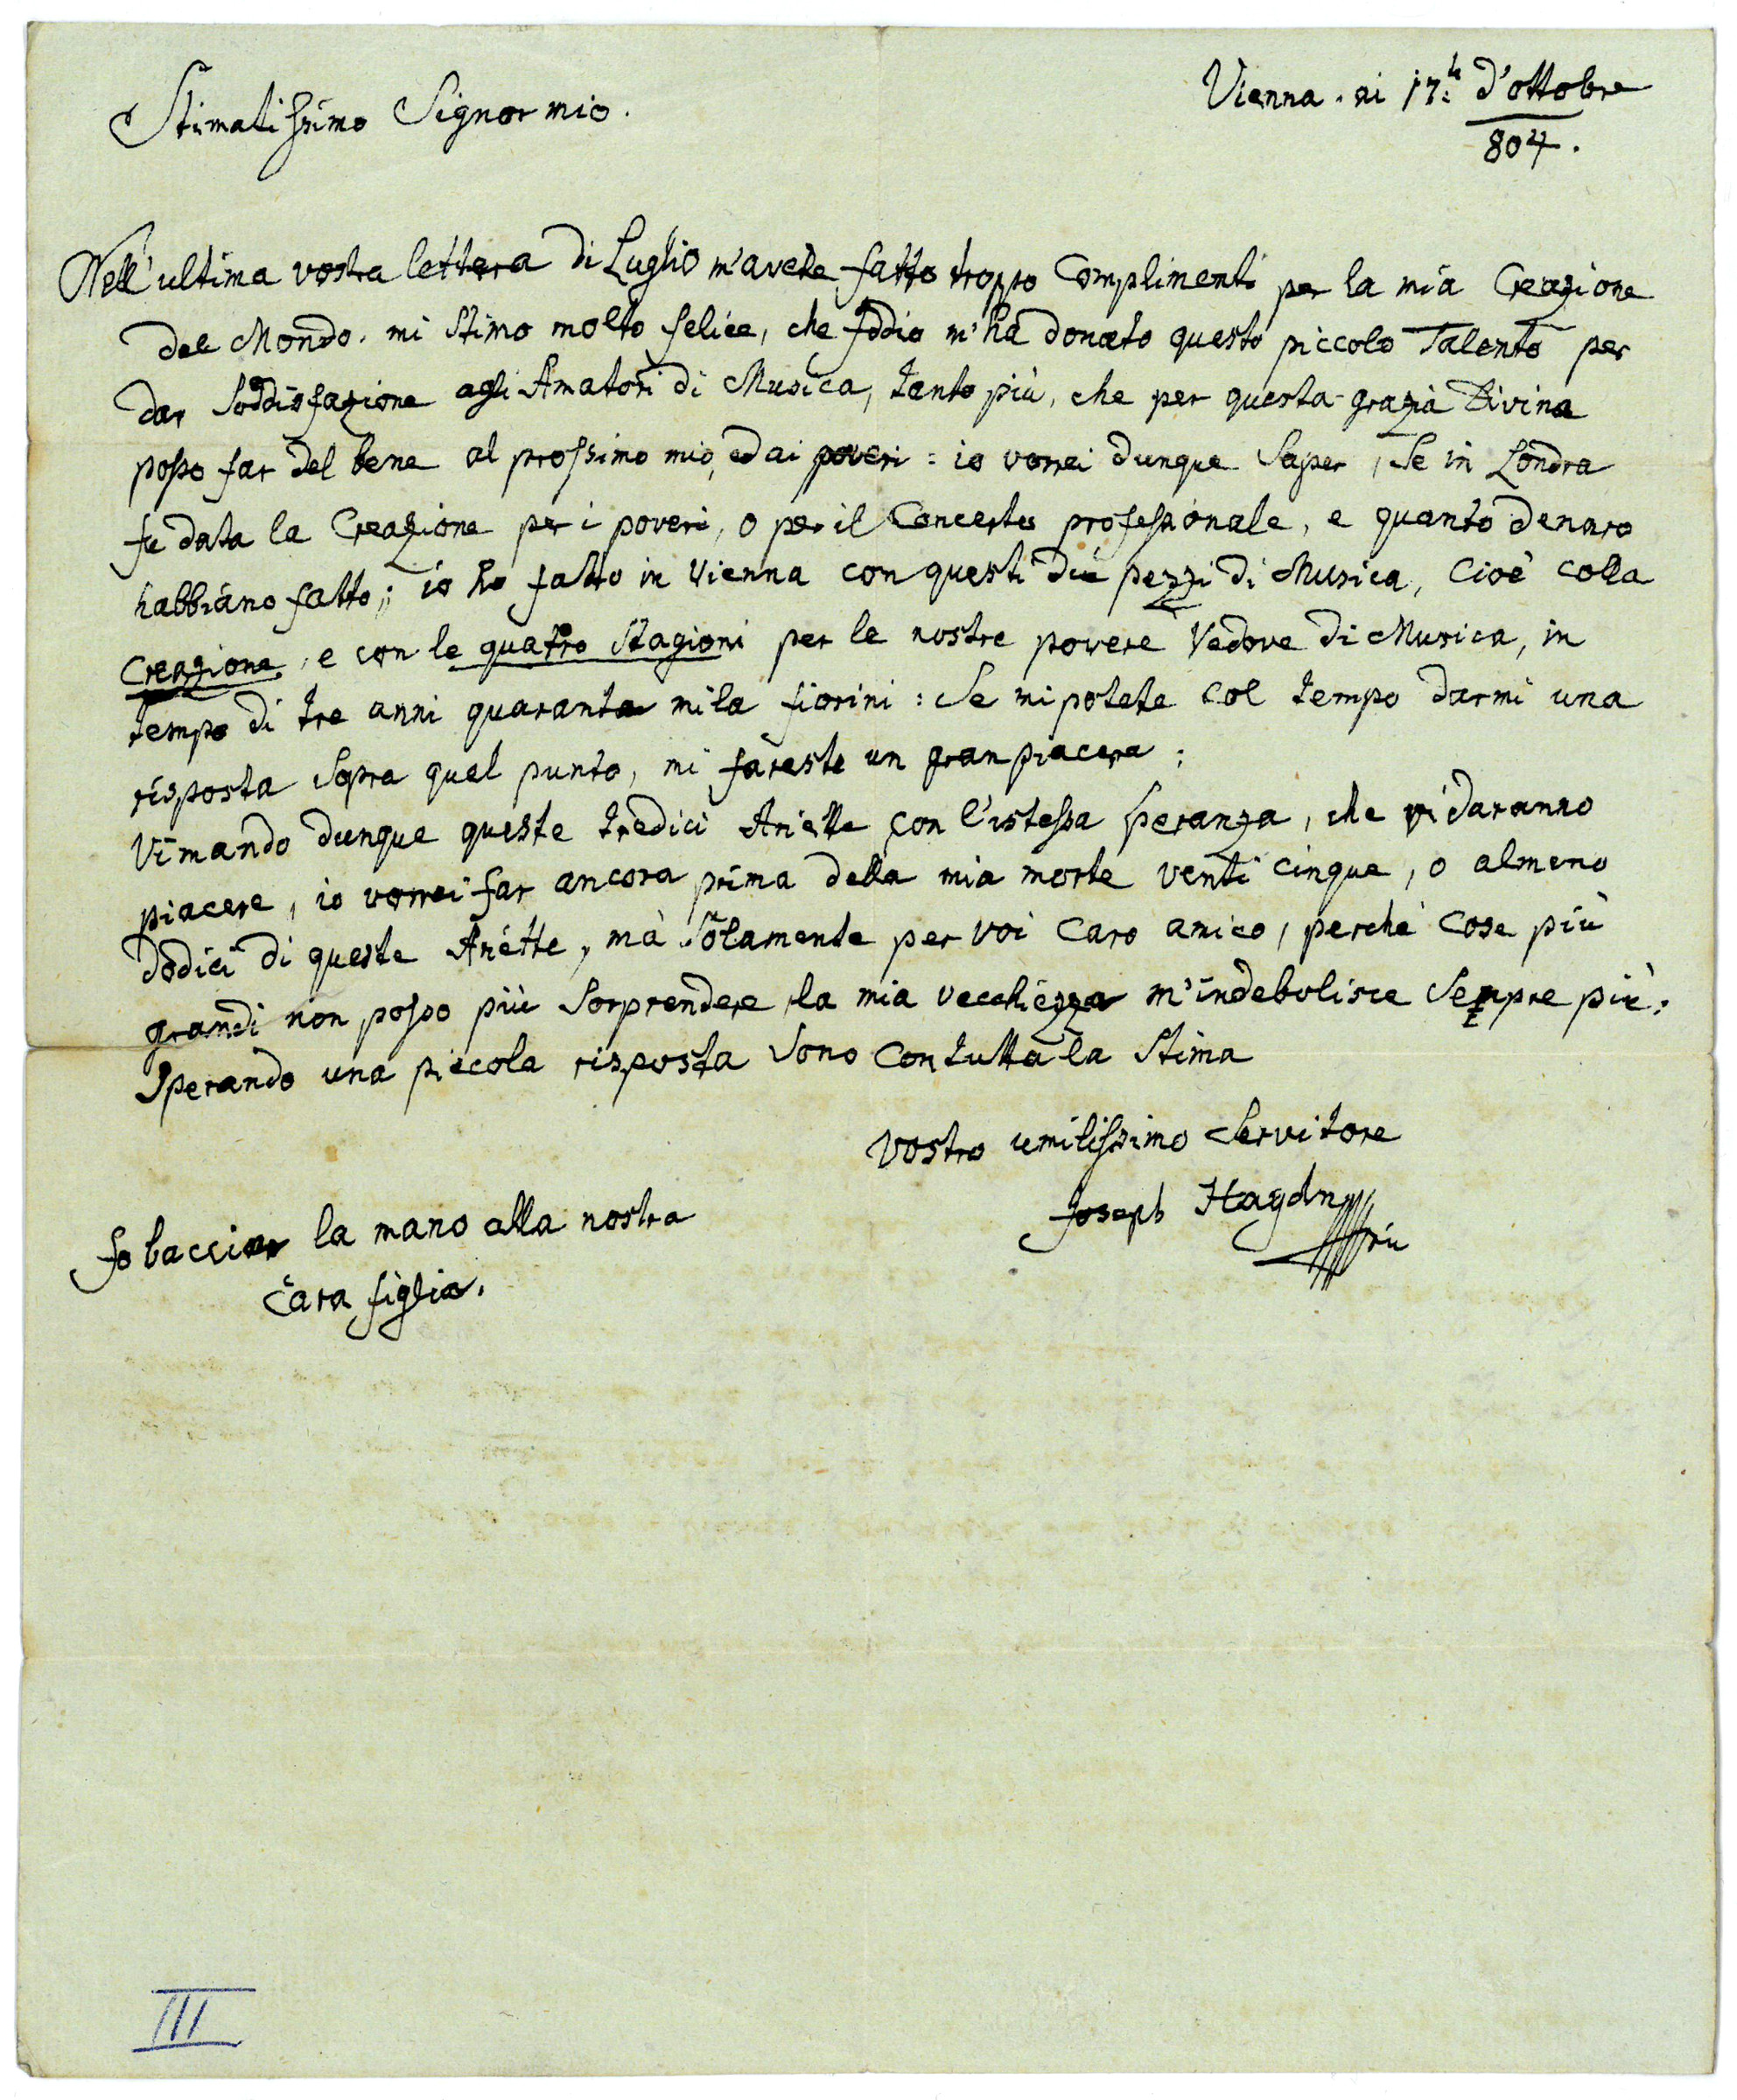 Vienna. ai 17: d'ottobre
804.
Stimatissimo Signor mio.
Nell'ultima vostra lettera di Luglio m'avete fatto troppo Complimenti per la mia Creazione
del Mondo. mi stimo molto felice, che Iddio m'ha donato questo piccolo Talento per
dar Soddisfazione agli Amatori di Musica, tanto più, che per questa grazia Divina
posso far del bene al prossimo mio, ed ai poveri: io vorrei dunque Saper, Se in Londra
fu data la Creazione per i poveri, o per il Concerto professionale, e quanto denaro
habbiano fatto; io ho fatto in Vienna con questi due pezzi di Musica, Cioè colla
Creazione, e con le quatro Stagioni per le nostre povere Vedove di Musica, in
tempo di tre anni quaranta mila fiorini: Se mi potete Col tempo darmi una
risposta Sopra quel punto, mi fareste un gran piacere:
Vi mando dunque queste tredici Ariette con l'istessa Speranza, che vi daranno
piacere, io vorrei far ancora prima della mia morte venti cinque, o almeno
dodici di queste Ariette, mà Solamente per voi Caro amico, perchè Cose più
grandi non posso più Sorprendere, la mia vecchiezza m'indebolisce Sempre più:
Sperando una piccola risposta Sono Con tutta la Stima
Vostro umilissimo Servitore
Joseph Haydn
fo bacciar la mano alla nostra
Cara figlia.
III